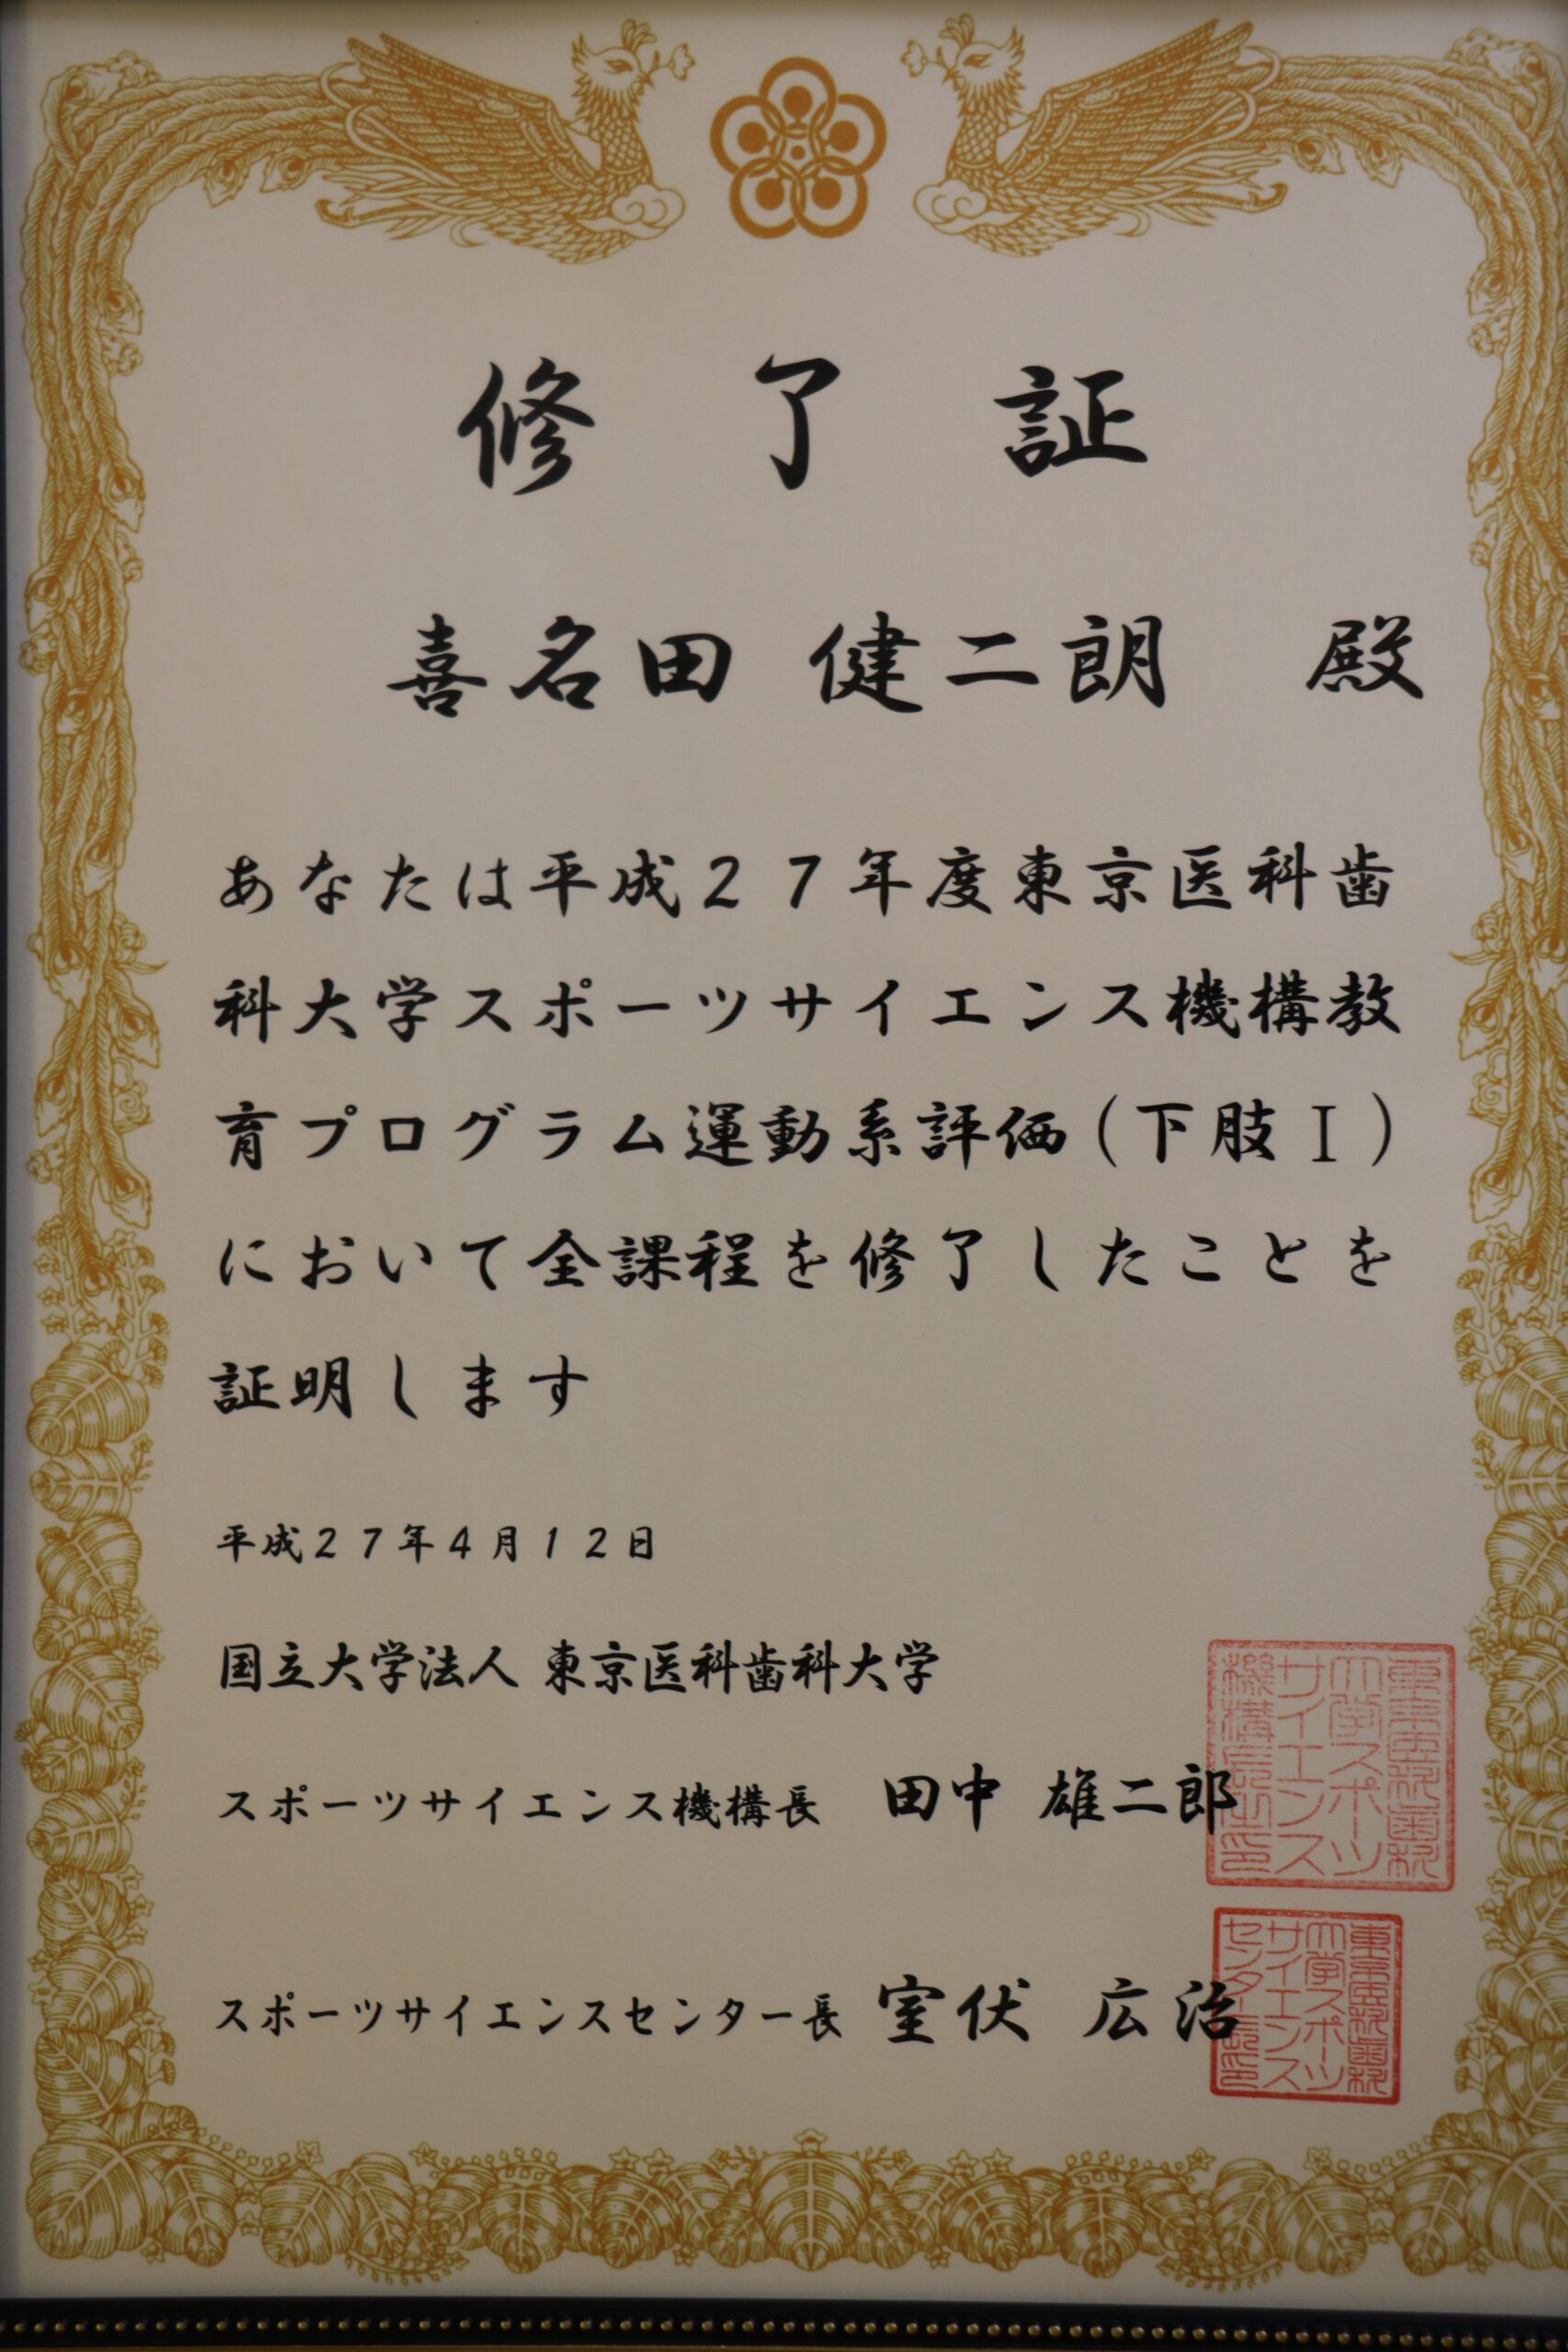 修了証
喜名田 健二朗 殿
あなたは平成２７年度東京医科歯
科大学スポーツサイエンス機構教
育プログラム運動系評価(下肢Ⅰ)
において全課程を修了したことを
証明します
平成２７年４月１２日
国立大学法人 東京医科歯科大学
スポーツサイエンス機構長 田中 雄二郎
東京医科歯科
大学スポーツ
サイエンス
機構長之印
スポーツサイエンスセンター長 室伏 広治
東京医科歯科
大学スポーツ
サイエンス
センター長印